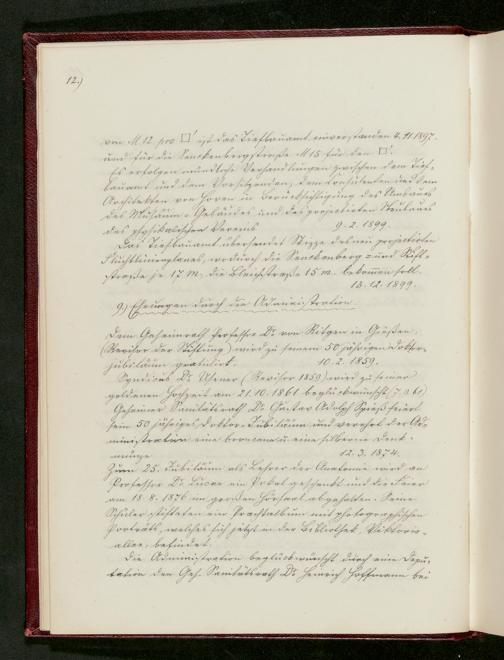 12.)
von M 12 pro □' ist das Tiefbauamt einverstanden 4.11.1897.
und für die Senckenbergstraße M 15 für den □'.
Es erfolgen mündliche Verhandlungen zwischen dem Tief-
bauamt und dem Vorsitzenden, dem Consulenten und dem
Architekten von Hoven in Berücksichtigung des Umbaues
des Museum-Gebäudes und des projectirten Neubaues
des physikalischen Vereins 9.2.1899.
Das Tiefbauamt übersendet Skizze des neu projectirten
Fluchtlinienplanes, wodurch die Senckenberg- und Stift-
straße je 17 M, die Bleichstraße 15 m. bekommen soll.
13.12.1899.
9.) Ehrungen durch die Administration
Dem Geheimrath Professor Dr von Ritgen in Gießen,
(Revisor der Stiftung) wird zu seinem 50 jährigen Doktor-
jubiläum gratulirt. 10.2.1859.
Syndicus Dr (Revisor 1859) wird zu seiner
goldenen Hochzeit am 21.10.1861 beglückwünscht
Geheimer Sanitätsrath Dr Gustav Adolph Spieß feiert
sein 50 jähriges Doktor-Jubiläum und verehrt der Ad-
ministration eine broncene u. eine silberne Denk-
münze 12.3.1874.
Zum 25. Jubiläum als Lehrer der Anatomie wird an
Professor Dr Lucae ein Pokal geschenkt und die Feier
am 18.8.1876 im großen Hörsaal abgehalten. Seine
Schüler stifteten ein Prachtalbum mit photographischen
Porträts, welches sich jetzt in der Bibliothek, Viktoria-
allee, befindet.
Die Administration beglückwünscht durch eine Depu-
tation den Geh. Sanitätsrath Dr Heinrich Hoffmann bei